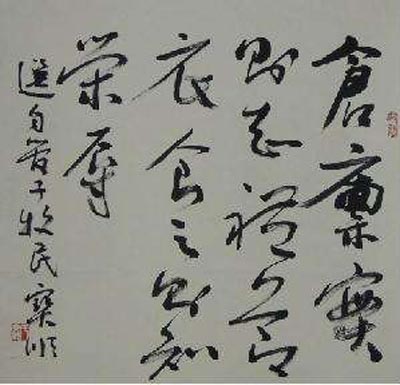 倉廩實
則知禮節
衣食足則知
榮辱
選自管子牧民寶順